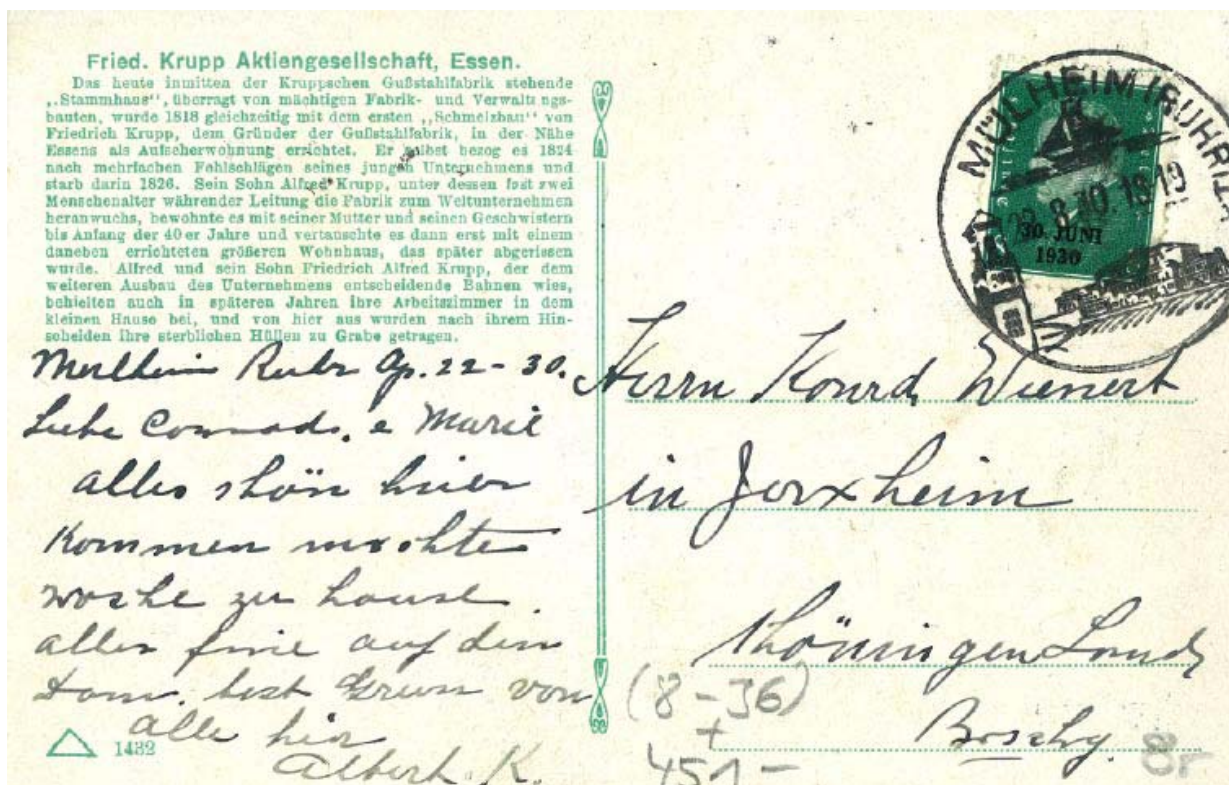 Fried. Krupp Aktiengesellschaft, Essen.
Das heute inmitten der Kruppschen Gußstahlfabrik stehende
„Stammhaus", überragt von mächtigen Fabrik- und Verwaltungs-
bauten, wurde 1818 gleichzeitig mit dem ersten „Schmelzbau" von
Friedrich Krupp, dem Gründer der Gußstahlfabrik, in der Nähe
Essens als Aufseherwohnung errichtet. Er selbst bezog es 1824
nach mehrfachen Fehlschlägen seines jungen Unternehmens und
starb darin 1826. Sein Sohn Alfred Krupp, unter dessen fast zwei
Menschenalter währender Leitung die Fabrik zum Weltunternehmen
heranwuchs, bewohnte es mit seiner Mutter und seinen Geschwistern
bis Anfang der 40er Jahre und vertauschte es dann erst mit einem
daneben errichteten größeren Wohnhaus, das später abgerissen
wurde. Alfred und sein Sohn Friedrich Alfred Krupp, der dem
weiteren Ausbau des Unternehmens entscheidende Bahnen wies,
behielten auch in späteren Jahren ihre Arbeitszimmer in dem
kleinen Hause bei, und von hier aus wurden nach ihrem Hin-
scheiden ihre sterblichen Hüllen zu Grabe getragen.
22-30.
Liebe Conrads. e Marie
alles shön hier
kommen nvohte
woche zu hause.
alles fine auf den
best von
alle hier
Albert K.
1432
MÜLHEIM (RUHR)
8.30.18-19
30. JUNI
1930
Herrn Konrd Wienert
in Jerxheim
shöningen Land
(8-36)
+
451-
8r